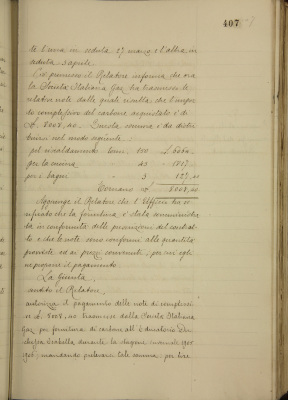 407
te l'una in seduta 27 marzo e l'altra in
seduta 3 aprile.
Ciò premesso il Relatore informa che ora
la Società Italiana Gaz ha trasmesso le
relative note dalle quali risulta che l'impor
to complessivo del carbone acquistato è di
£. 8008,40. Questa somma è da distri
buirsi nel modo seguente:
pel riscaldamento Tonn. 150
per la cucina " 45
per i bagni " 3
Tornano £. 8008,40
Aggiunge il Relatore che l'Ufficio ha ve
rificato che la fornitura è stata amministra
ta in conformità delle prescrizioni del contrat
to e che le note sono conformi alle quantità
provviste ed ai prezzi convenuti, per cui egli
ne propone il pagamento.
La Giunta
udito il Relatore,
autorizza il pagamento delle note di complessi
ve £. 8008,40 trasmesse dalla Società Italiana
Gaz per fornitura di carbone all'Educatorio Du
chessa Isabella durante la stagione invernale
mandando prelevarsi tale somma, per lire